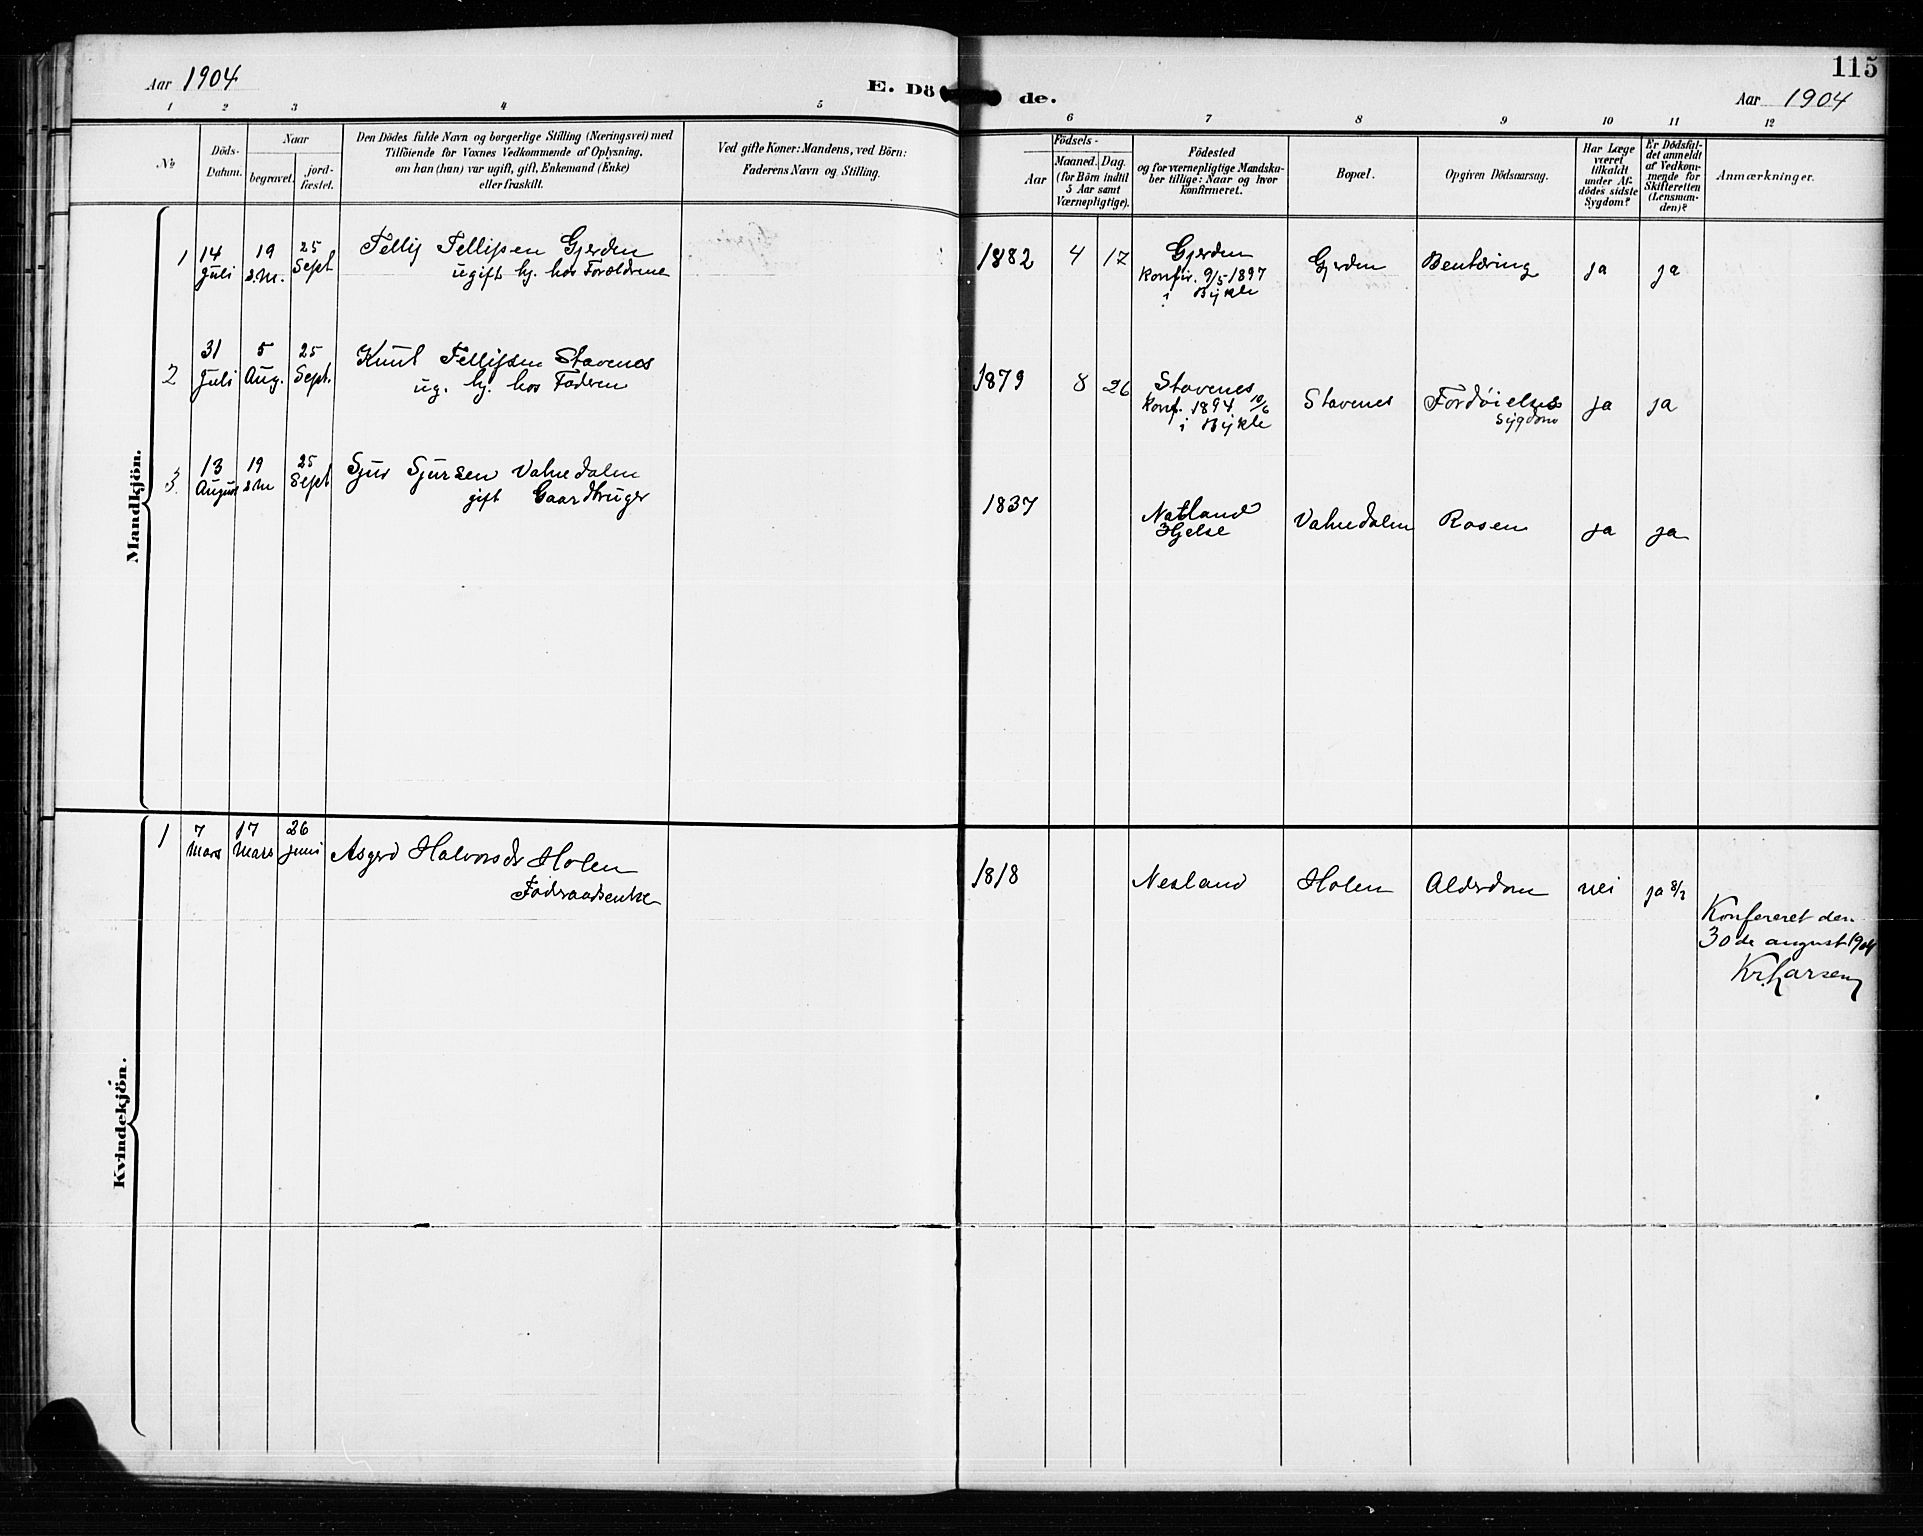 115
Aar 1904
E. Dö de.
Aar 1904
1 2 3 4 5 6 7 8 9 10 11 12
No
Döds-
Datum.
Naar
begravet.
jord-
fæstet.
Den Dödes fulde Navn og borgerlige Stilling (Næringsvei) med
Tilföiende for Voxnes Vedkommende af Oplysning,
om han (hun) var ugift, gift, Enkemand (Enke)
eller fraskilt.
Ved gifte Koner: Mandens, ved Börn:
Faderens Navn og Stilling.
Födsels-
Aar
Maaned. Dag.
(for Börn indtil
5 Aar samt
Værnepligtige).
Födested
og for værnepligtige Mandska-
ber tillige: Naar og hvor
konfirmeret.
Bopæl.
Opgiven Dödsaarsag.
Har Læge
været
tilkaldt
under Af-
dödes sidste
Sygdom?
Er Dödsfal-
det anmeldt
af Vedkom-
mende for
Skifteretten
(Lensman-
den)?
Anmærkninger.
Mandkjön.
1 14 Juli 19 s.M. 25 Sept
Tellif Tellifsen Gjerden
ugift hj. hos Forældrene
1882 4 17
Gjerden
Konfir. 9/5-1897
i Bykle
Gjerden
Bentæring
ja ja
2 31 Juli 5 Aug. 25 Sept.
Knut Tellifsen Stavenes
ug. hj. hos Faderen
1879 8 26
Stavenes
konf. 1894 10/6
i Bykle
Stavenes
Fordøielses
Sygdom
ja ja
3. 13 August 19 s M 25 Sept
Sjur Sjursen Vatnedalen
gift Gaardbruger
1837
Natland
Hjelse
Vatnedalen
Rosen
ja ja
Kvindekjön.
1 7 Mars 17 Mars 26 Juni
Asgerd Halvorsdr Holen
Föderaadsenke
1818
Nesland
Holen
Alderdom
nei ja 8/3
Konfereret den
30de august 1904
Kr. Larsen